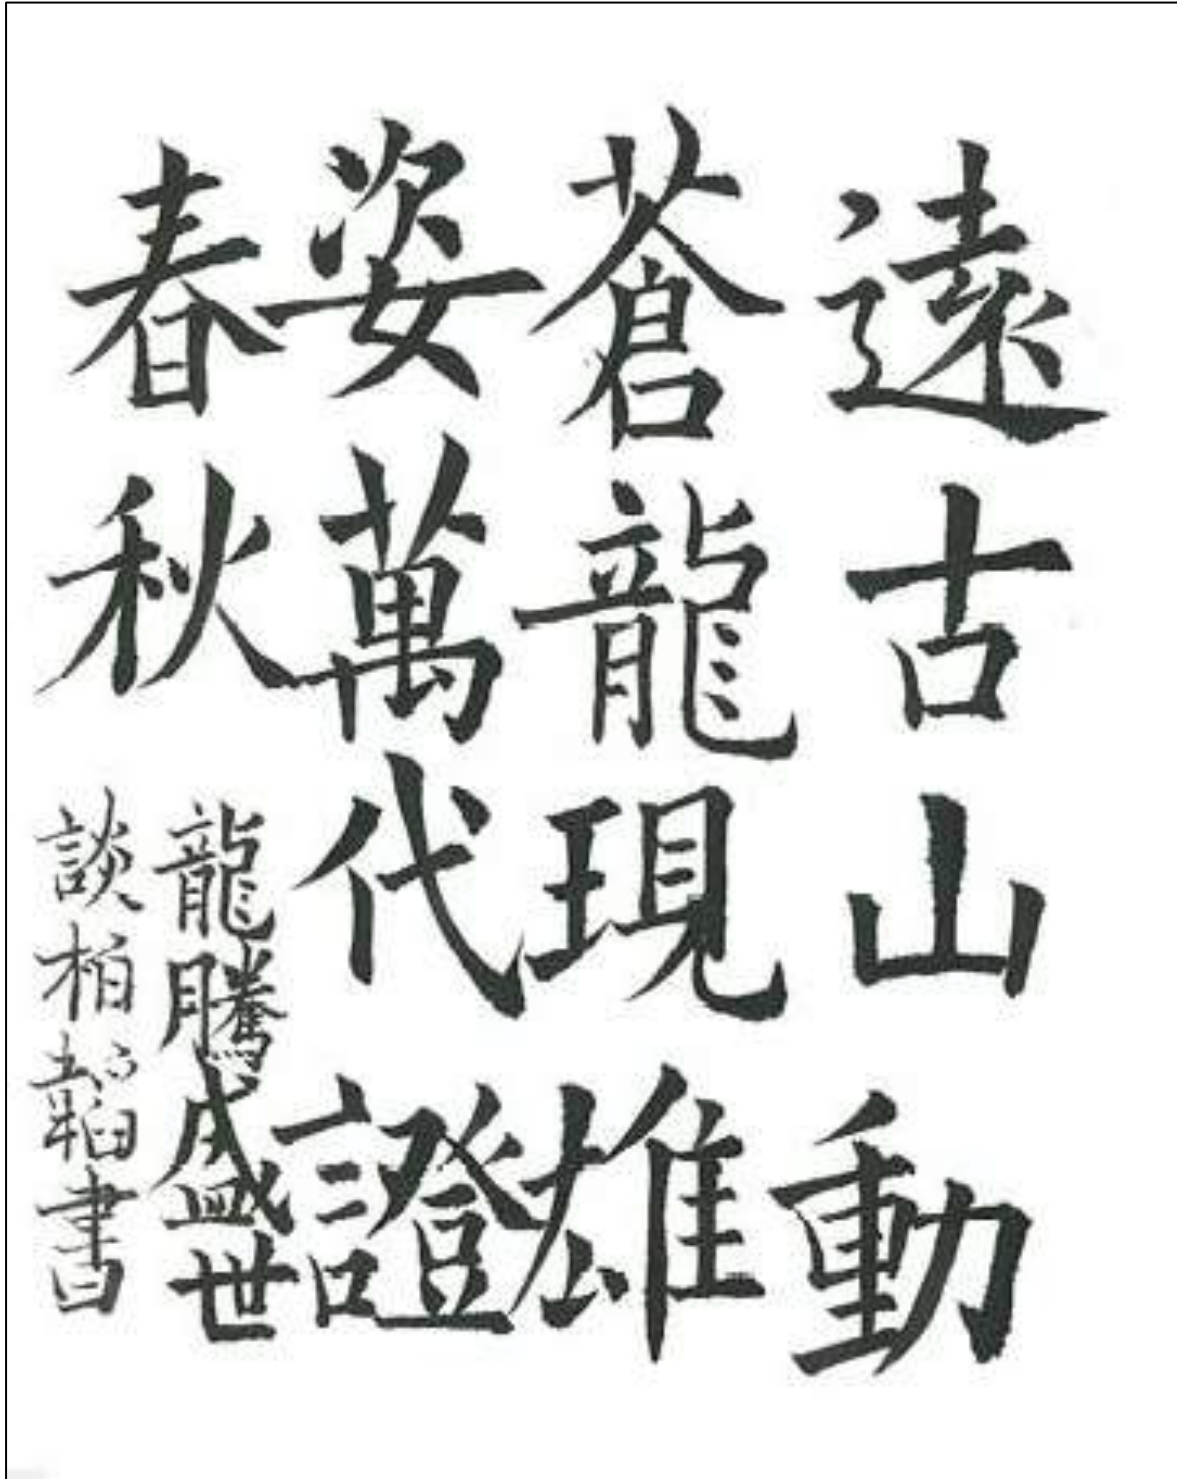 遠古山動
蒼龍現雄
姿萬代證
春秋
龍騰盛世
談柏韜書